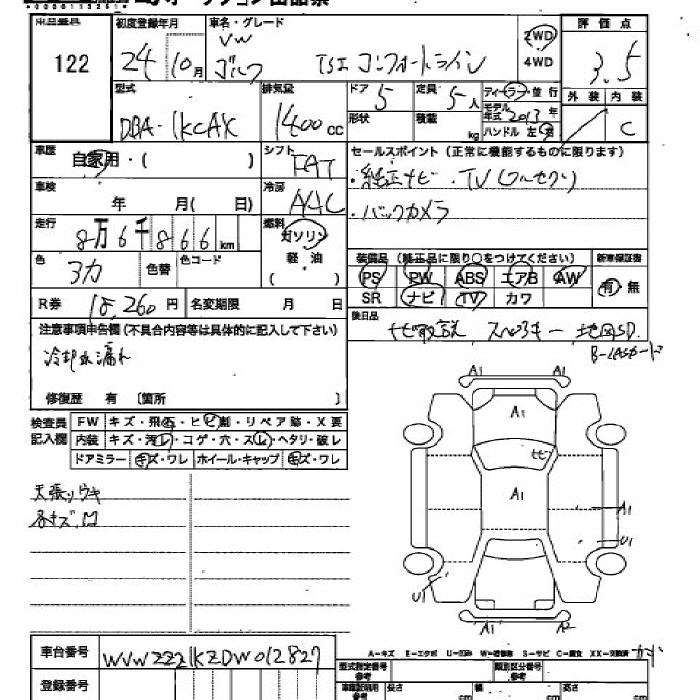 122
初度登録年月 24 10月
車名・グレード VW ゴルフ TSI コンフォートライン
2WD
4WD
評価点 3.5
外装 内装 C
型式 DBA-1KCAX
排気量 1400 cc
ドア 5
定員 5人
形状
積載 kg
ディーラー 並行
モデル年式 2013年
ハンドル 左 右
車歴 自家用・( )
シフト FAT
冷房 AAC
車検 年 月( 日)
走行 8万6千866 km
燃料 ガソリン
軽・油
( )
色 シロ
色替
色コード
R券 18,260円
名変期限 月 日
セールスポイント(正常に機能するものに限ります)
・純正ナビ・TV(フルセグ)
・バックカメラ
装備品(純正品に限り○をつけてください)
新車保証書
PS PW ABS エアB AW
SR ナビ TV カワ
有・無
後日品 ナビ取説 スペアキー 地図SD
B-CASカード
注意事項申告欄(不具合内容等は具体的に記入して下さい)
冷却水漏れ
修復歴 有 〔箇所 〕
検査員記入欄
FW キズ・飛石・ヒビ割・リペア跡・X要
内装 キズ・汚レ・コゲ・穴・スレ・ヘタリ・破レ
ドアミラー キズ・ワレ ホイール・キャップ キズ・ワレ
天張りウキ
各キズ、凹
A1 A1
A1
ヒビ
A1
A1
U1
U1
A1 A2
A-キズ E-エクボ U-凹み W-補修跡 S-サビ C-腐食 XX-交換済
車台番号 WVWZZZ1KZDW012827
登録番号
型式指定番号 参考
類別区分番号 参考
長さ cm 幅 cm 高さ cm